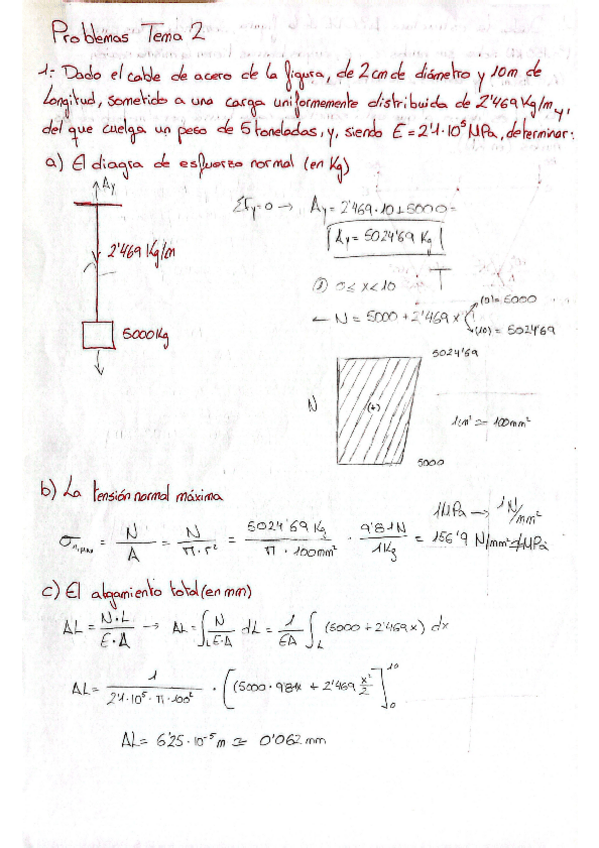 Problemas Tema 2
1.- Dado el cable de acero de la figura, de 2cm de diámetro y 10m de
longitud, sometido a una carga uniformemente distribuida de 2'469 Kg/m y,
del que cuelga un peso de 5 toneladas, y, siendo E = 2'1·10⁵ MPa, determinar:
a) El diagra de esfuerzo normal (en Kg)
Ay
2'469 Kg/m
5000Kg
ΣFy=0 → Ay = 2'469·10+5000=
Ay = 5024'69 Kg
① 0≤x<10
← N = 5000 + 2'469 x
(0)= 5000
(10) = 5024'69
N
5024'69
(+)
5000
1cm² = 100mm²
b) La tensión normal máxima
σn,max = N/A = N/π·r² = 5024'69 Kg/π·100mm² · 9'81N/1Kg = 156'9 N/mm² MPa
1MPa → 1N/mm²
c) El alrgamiento total (en mm)
ΔL = N·L/E·A → ΔL = ∫L N/E·A dL = 1/EA ∫L (5000 + 2'469x) dx
ΔL = 1/2'1·10⁵·π·100² · [(5000·9'81x + 2'469 x²/2]₀¹⁰
ΔL = 6'25·10⁻⁵ m ≃ 0'062 mm